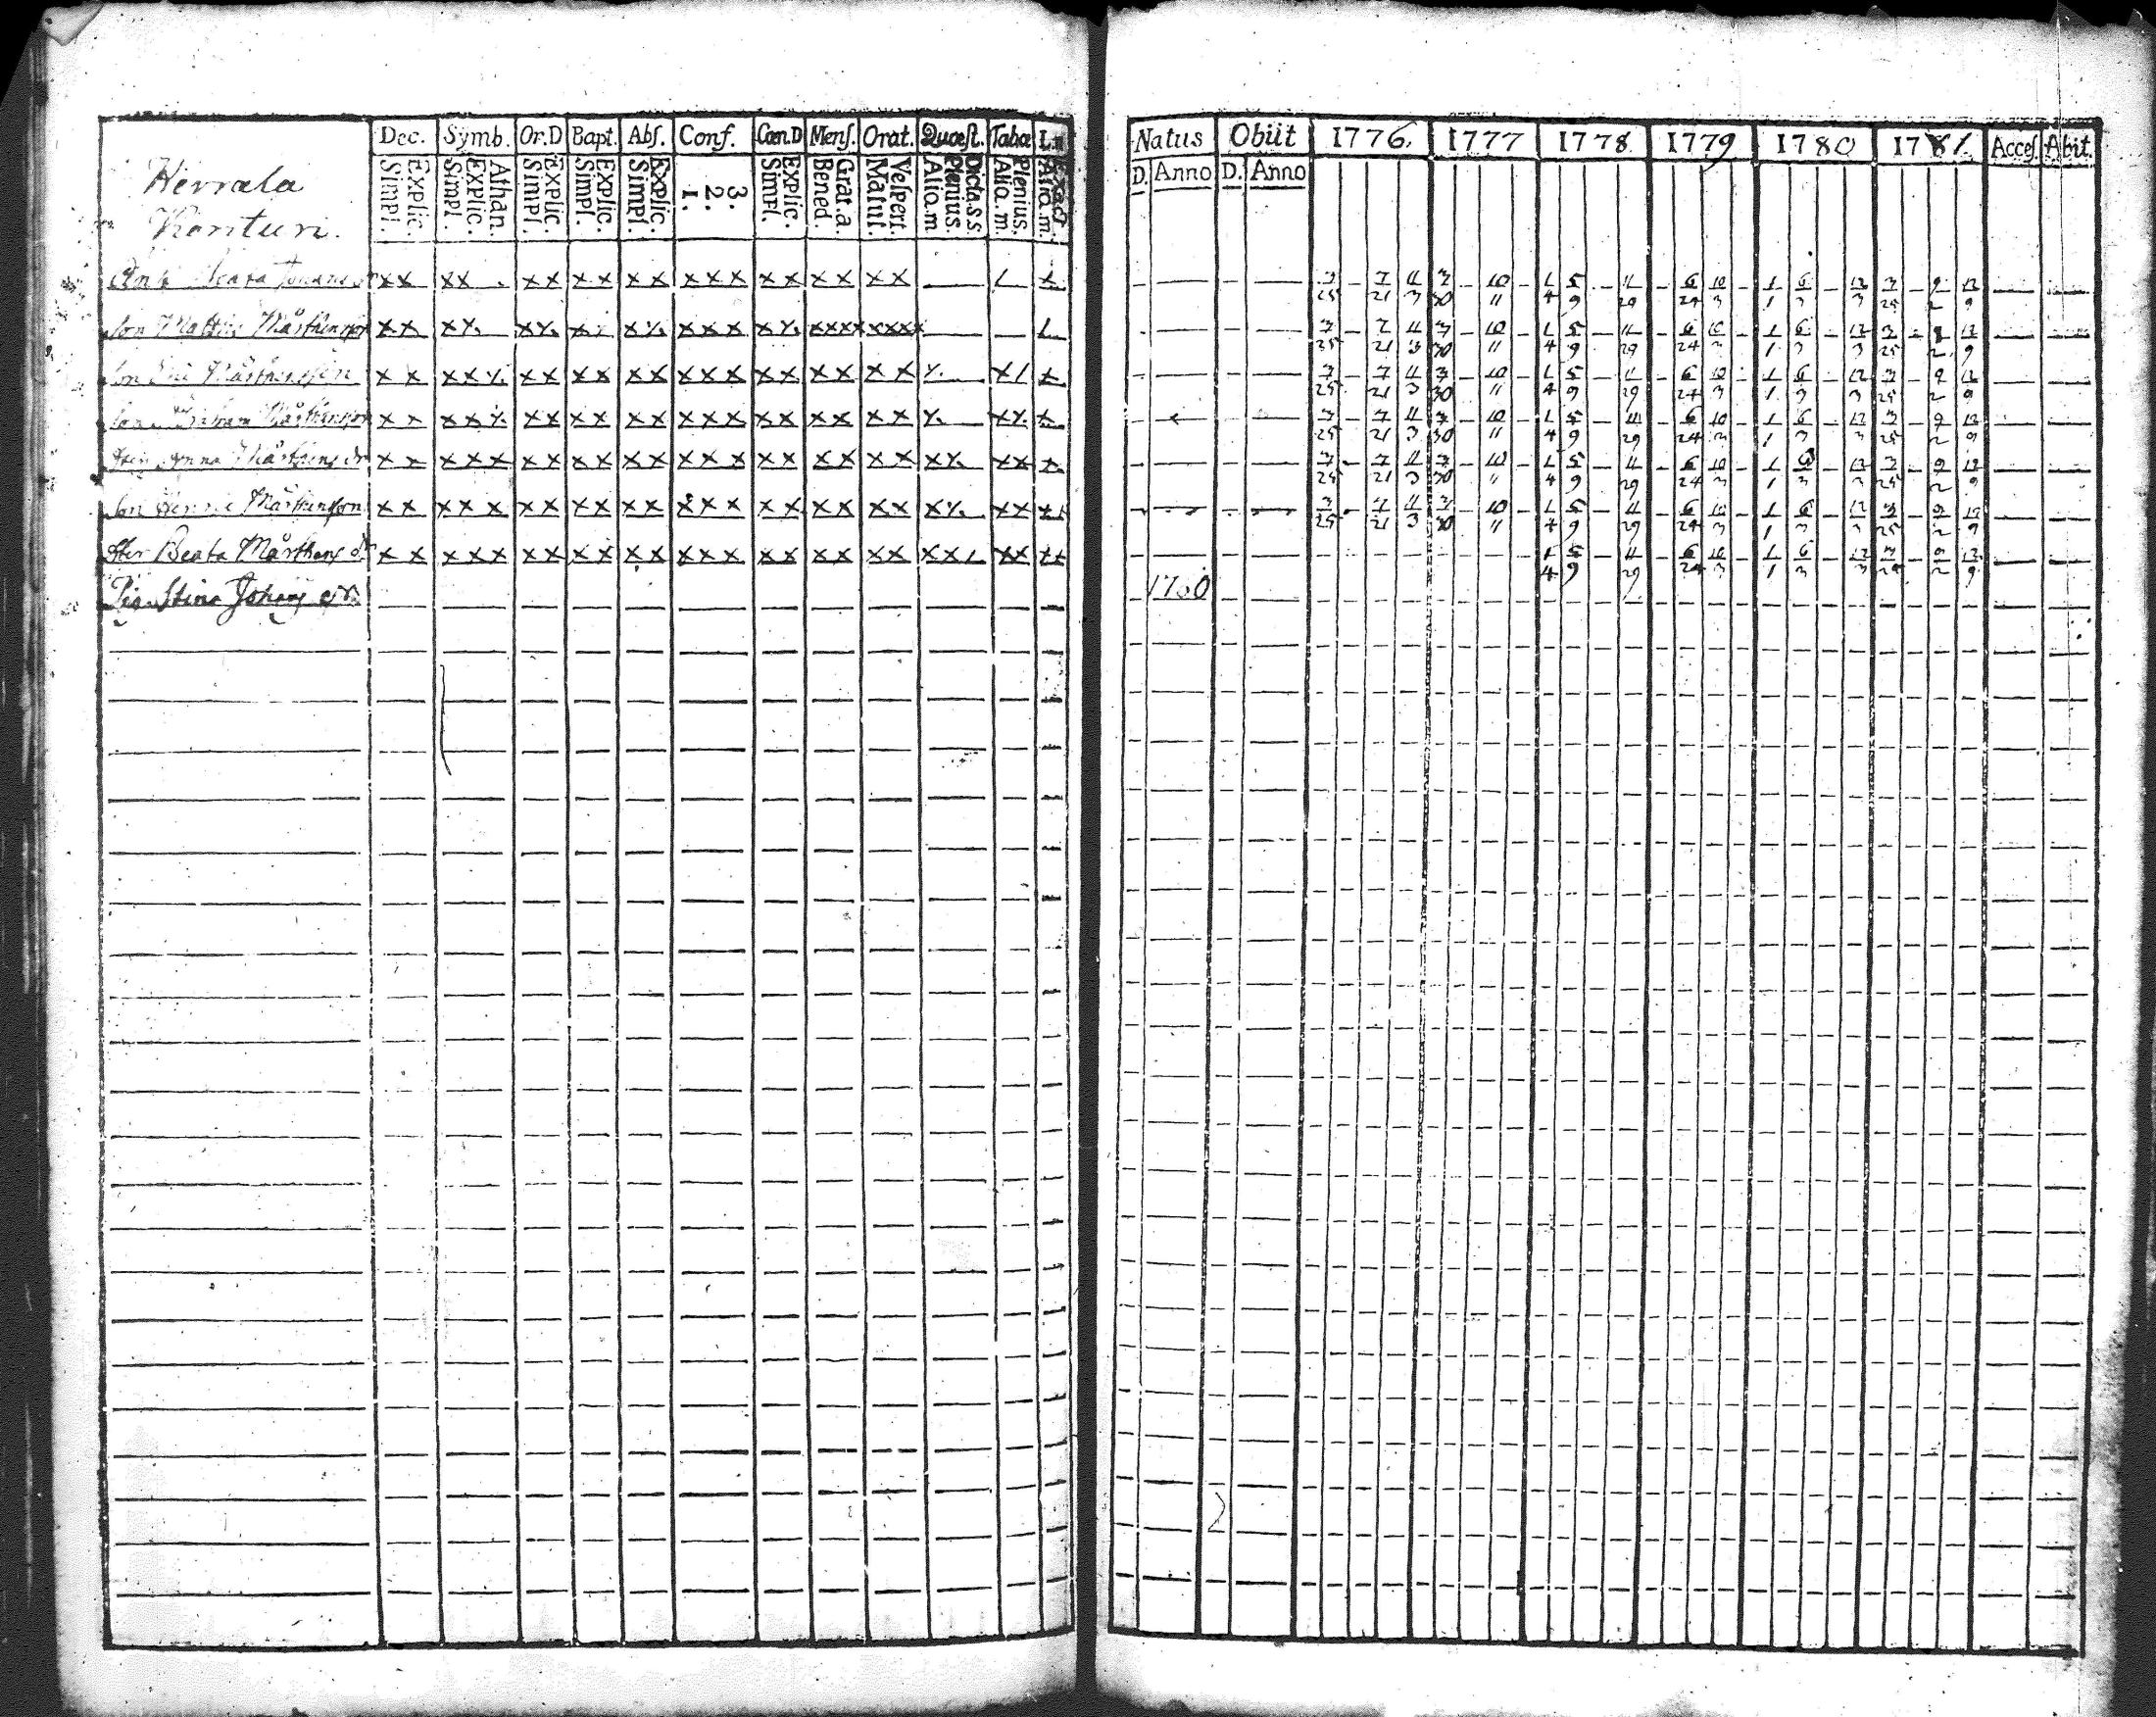 Herrala
Konturi.
Dec. Symb. Or.D Bapt. Abſ. Conf. Cœn.D Menſ. Orat. Quœſt. Tabœ L.n
Explic. Simpl. Athan. Explic. Simpl. Explic. Simpl. Explic. Simpl. Explic. Simpl. 3. 2. 1. Explic. Simpl. Grat.a. Bened. Veſpert. Matut. Dicta.s.s. Plenius. Alio.m Plenius. Alio.m. Exact Alio.m.
Enk. Beata Johans dr xx xx xx xx xx xxx xx xx xx
Son Matths Mårthensson xx
Son Eric Mårthensson xx
Son Mårthensson xx
Dtr Anna Mårthens dr xx xxx xx xx xx xxx xx xx xx
Son Henric Mårthensson xx xxx xx xx xx
Dtr Beata Mårthens dr xx xxx xx xx xx xxx xx xx xx
Pig. Stina Johans dr.
Natus Obiit 1776. 1777 1778 1779 1780 1781 Acceſ. Abit.
D. Anno D. Anno
3 7 11 3 10 1 5 11 6 10 1 6 12 3 9 12
25 21 3 30 11 4 9 29 24 3 1 3 3 25 2 9
3 7 11 3 10 1 5 11 6 10 1 6 12 3 12
25 21 3 30 11 4 9 29 24 3 1 3 3 25 2 9
3 7 11 3 10 1 5 11 6 10 1 6 12 3 9 12
25 21 3 30 11 4 9 29 24 3 1 3 3 25 2 9
3 7 11 3 10 1 5 11 6 10 1 6 12 3 9 12
25 21 3 30 11 4 9 29 24 3 1 3 3 25 2 9
3 7 11 3 10 1 5 11 6 10 1 12 3 9 12
25 21 3 30 11 4 9 29 24 3 1 3 3 25 2 9
3 7 11 3 10 1 5 11 6 10 1 6 12 3 9 12
25 21 3 30 11 4 9 29 24 3 1 3 3 25 2 9
1 5 11 6 10 1 6 12 3 9 12
4 9 29 24 3 1 3 3 25 2 9
1760